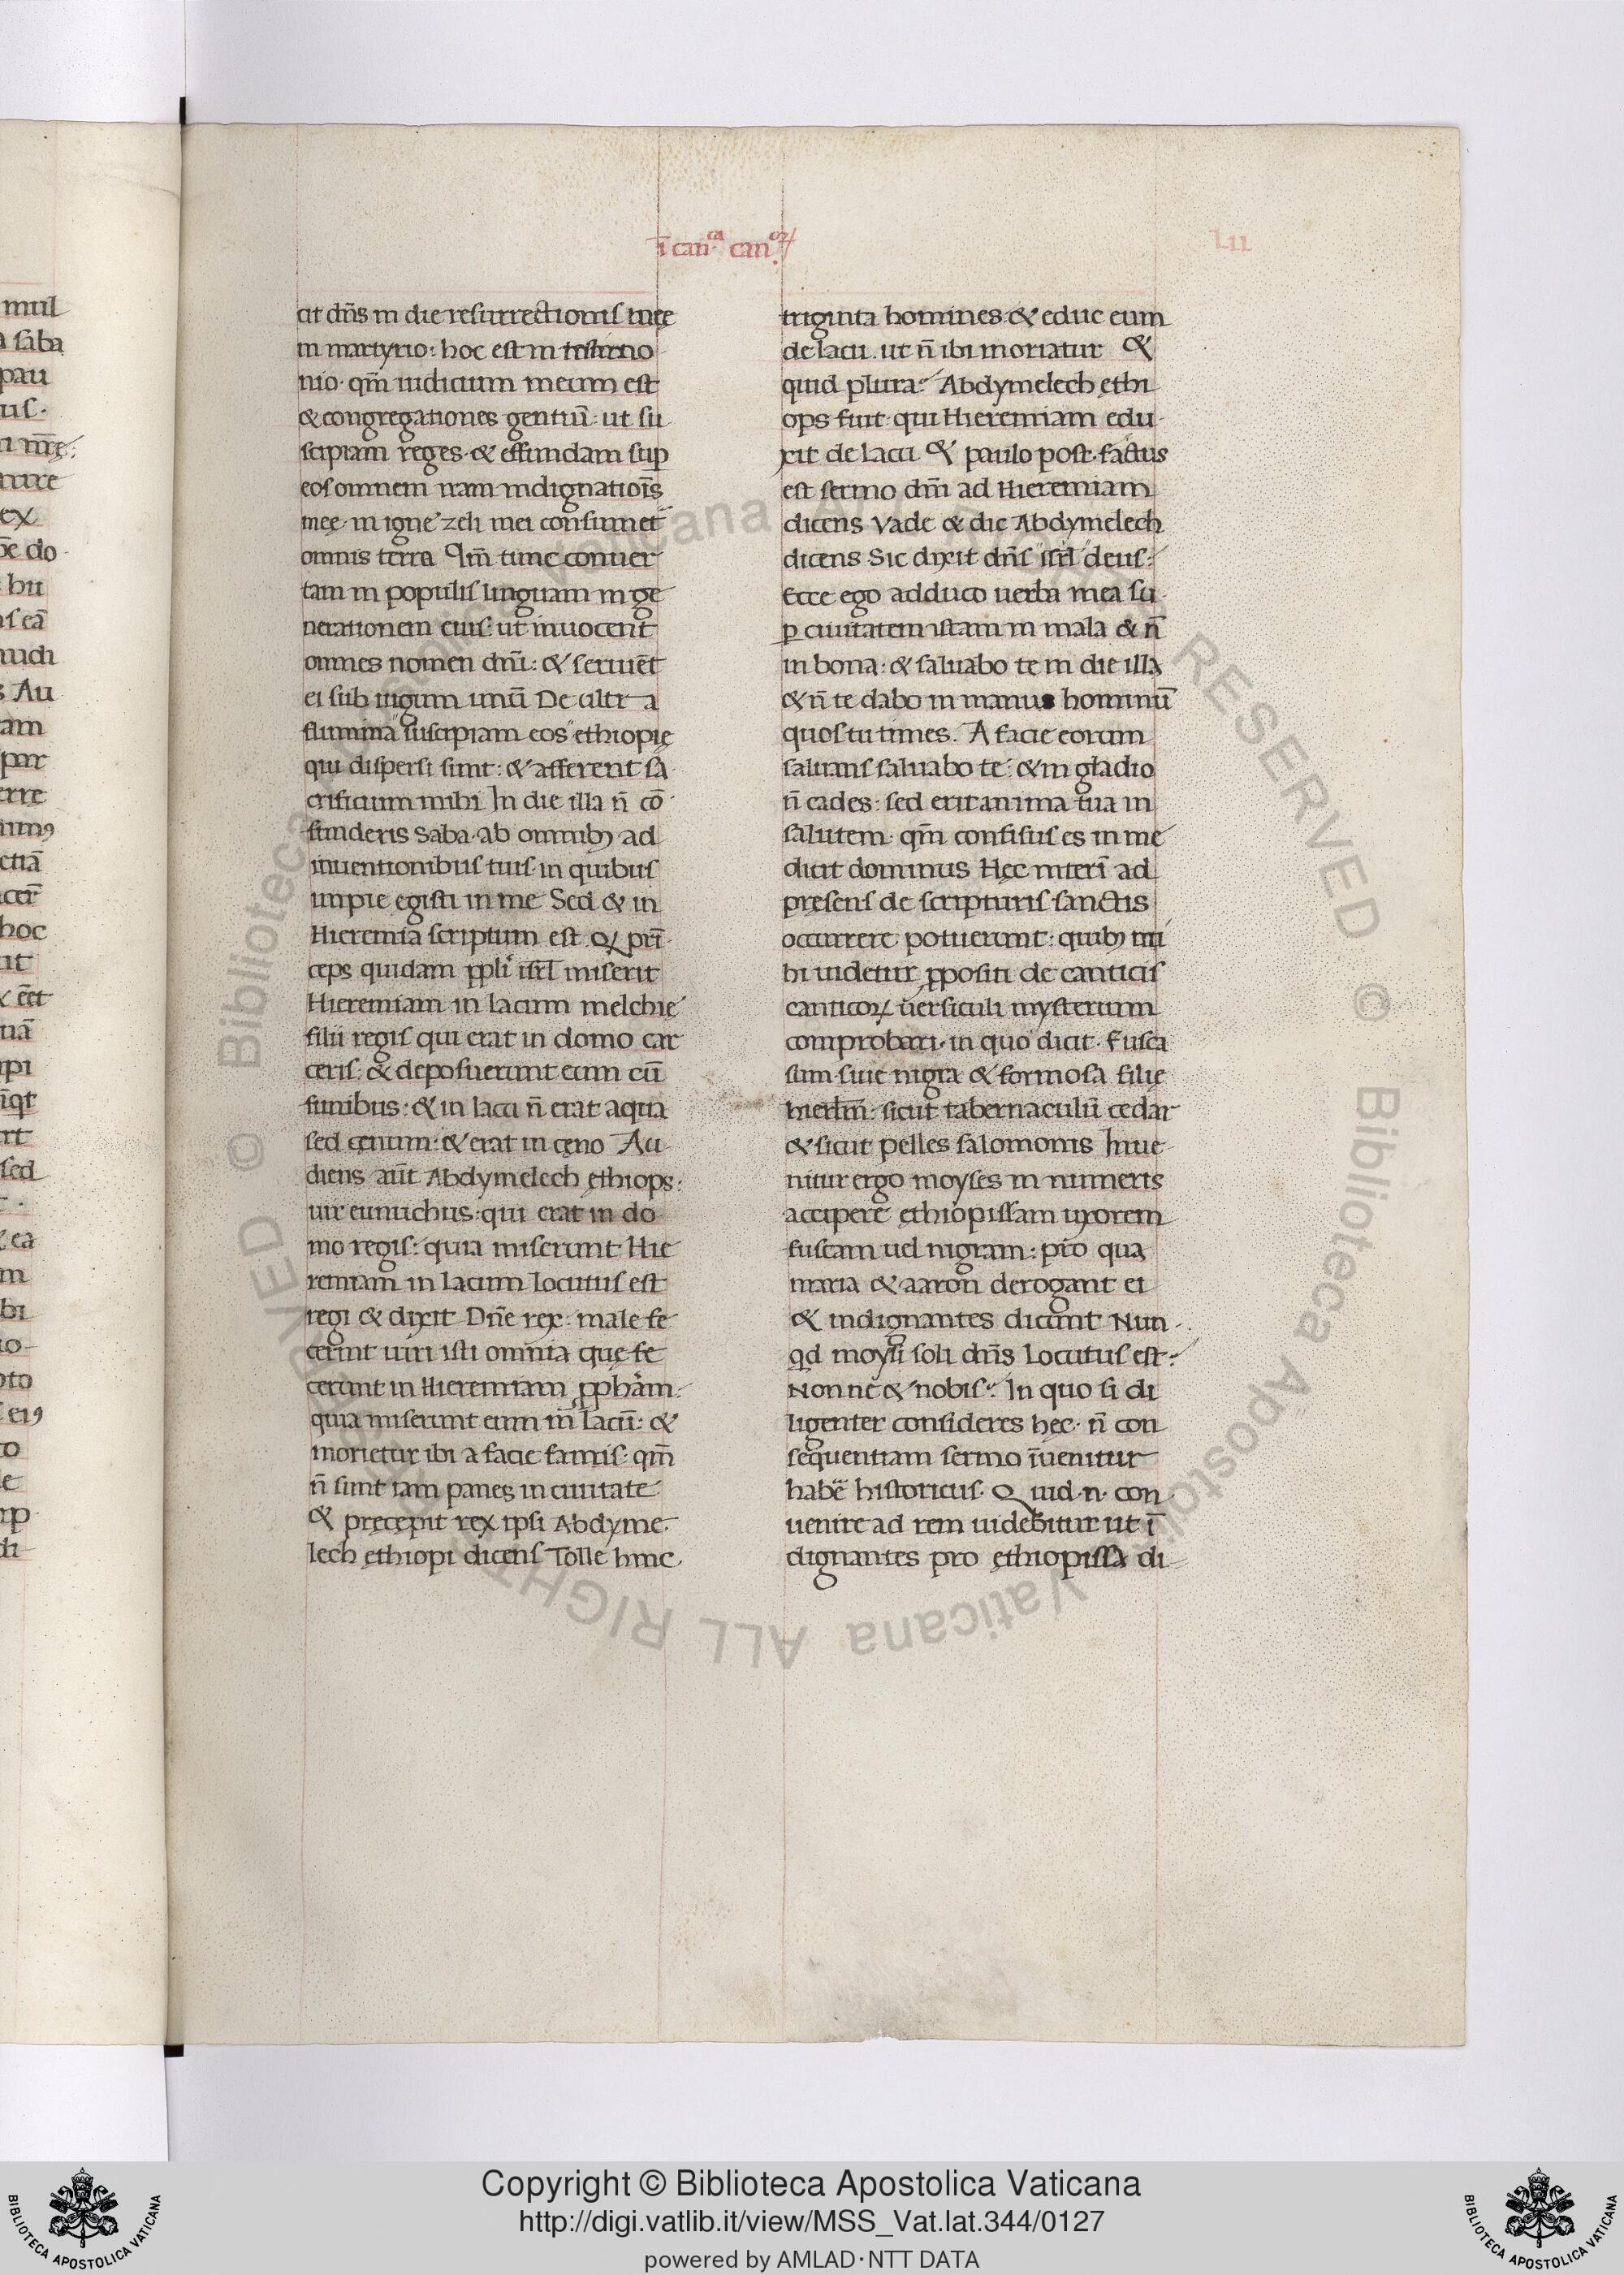 ī can^ca can^oꝝ
LII
cit dn̄s in die resurrectionis meę
in martyrio: hoc est in testimo
nio· qm̄ iudicium meum est
& congregationes gentiū: ut su
scipiam reges· & effundam sup̱
eos omnem iram indignatiōis
meę· in igne zeli mei consumet̄
omnis terra Qm̄ tunc conuer
tam in populis linguam in ge
nerationem eius: ut inuocent
omnes nomen dn̄i: & seruiēt
ei sub iugum unū De ultr a
flumina suscipiam eos ethiopię
qui dispersi sunt: & afferent sa
crificium mihi In die illa n̄ cō
funderis Saba· ab omnibꝫ ad
inuentionibus tuis in quibus
impie egisti in me Sed & in
Hieremia scriptum est Qꝫ prī
ceps quidam pp̄li isrl̄ miserit
Hieremiam in lacum melchie
filii regis qui erat in domo car
ceris: & deposuerunt eum cū
funibus: & in lacu n̄ erat aqua
sed cenum: & erat in ceno Au
diens aūt Abdymelech ęthiops:
uir eunuchus: qui erat in do
mo regis: quia miserunt Hie
remiam in lacum locutus est
regi & dixit Dn̄e rex: male fe
cerunt uiri isti omnia quę fe
cerunt in Hieremiam ꝓpham̄:
quia miserunt eum in lacū: &
morietur ibi a facie famis: qm̄
n̄ sunt iam panes in ciuitate
& pręcępit rex ipsi Abdyme
lech ęthiopi dicens Tolle hinc
triginta homines· & educ eum
de lacu. ut n̄ ibi moriatur &
quid plura? Abdymelech ęthi
ops fuit· qui Hieremiam edu
xit de lacu & paulo post· factus
est sermo dn̄i ad Hieremiam
dicens Vade & dic Abdymelech
dicens Sic dixit dn̄s isrl̄ deus:
Ecce ego adduco uerba mea su
p̱ ciuitatem istam in mala & n̄
in bona: & saluabo te in die illa
& n̄ te dabo in manus hominū
quos tu times. A facie eorum
saluans saluabo te: & in gladio
n̄ cades: sed erit anima tua in
salutem· qm̄ confisus es in me
dicit dominus Hęc interī ad
pręsens de scripturis sanctis
occurrere potuerunt: quibꝫ mi
hi uidetur ꝓpositi de canticis
canticoꝝ uersiculi mysterium
comprobari· in quo dicit· Fusca
sum siue nigra & formosa filię
hierlm̄: sicut tabernaculū cedar
& sicut pelles salomonis Inue
nitur ergo moyses in numeris
accipere ęthiopissam uxorem
fuscam uel nigram: pro qua
maria & aaron derogant ei
& indignantes dicunt Nun
qd moysi soli dn̄s locutus est?
Nonne & nobis? In quo si di
ligenter consideres hęc· n̄ con
sequentiam sermo īuenitur
habē historicus· Quid ·n· con
uenire ad rem uidebitur ut ī
dignantes pro ęthiopissa di
mul
saba
pau
Copyright © Biblioteca Apostolica Vaticana
http://digi.vatlib.it/view/MSS_Vat.lat.344/0127
powered by AMLAD·NTT DATA
BIBLIOTECA APOSTOLICA VATICANA
BIBLIOTECA APOSTOLICA VATICANA